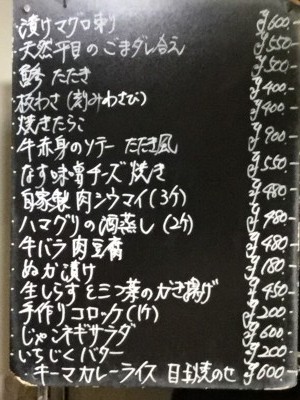 漬けマグロ刺 ¥600
天然平目のごまダレ合え ¥550
鯵 たたき ¥500
板わさ(刻みわさび) ¥400
焼きたらこ ¥400
牛赤身のソテー たたき風 ¥900
なす味噌チーズ焼き ¥550
自家製 肉シウマイ(3ケ) ¥480
ハマグリの酒蒸し(2ケ) ¥480
牛バラ肉豆腐 ¥480
ぬか漬け ¥180
生しらすと三つ葉のかき揚げ ¥450
手作りコロッケ(1ケ) ¥200
じゃこネギサラダ ¥600
いちじくバター ¥200
キーマカレーライス 目玉焼のせ ¥600